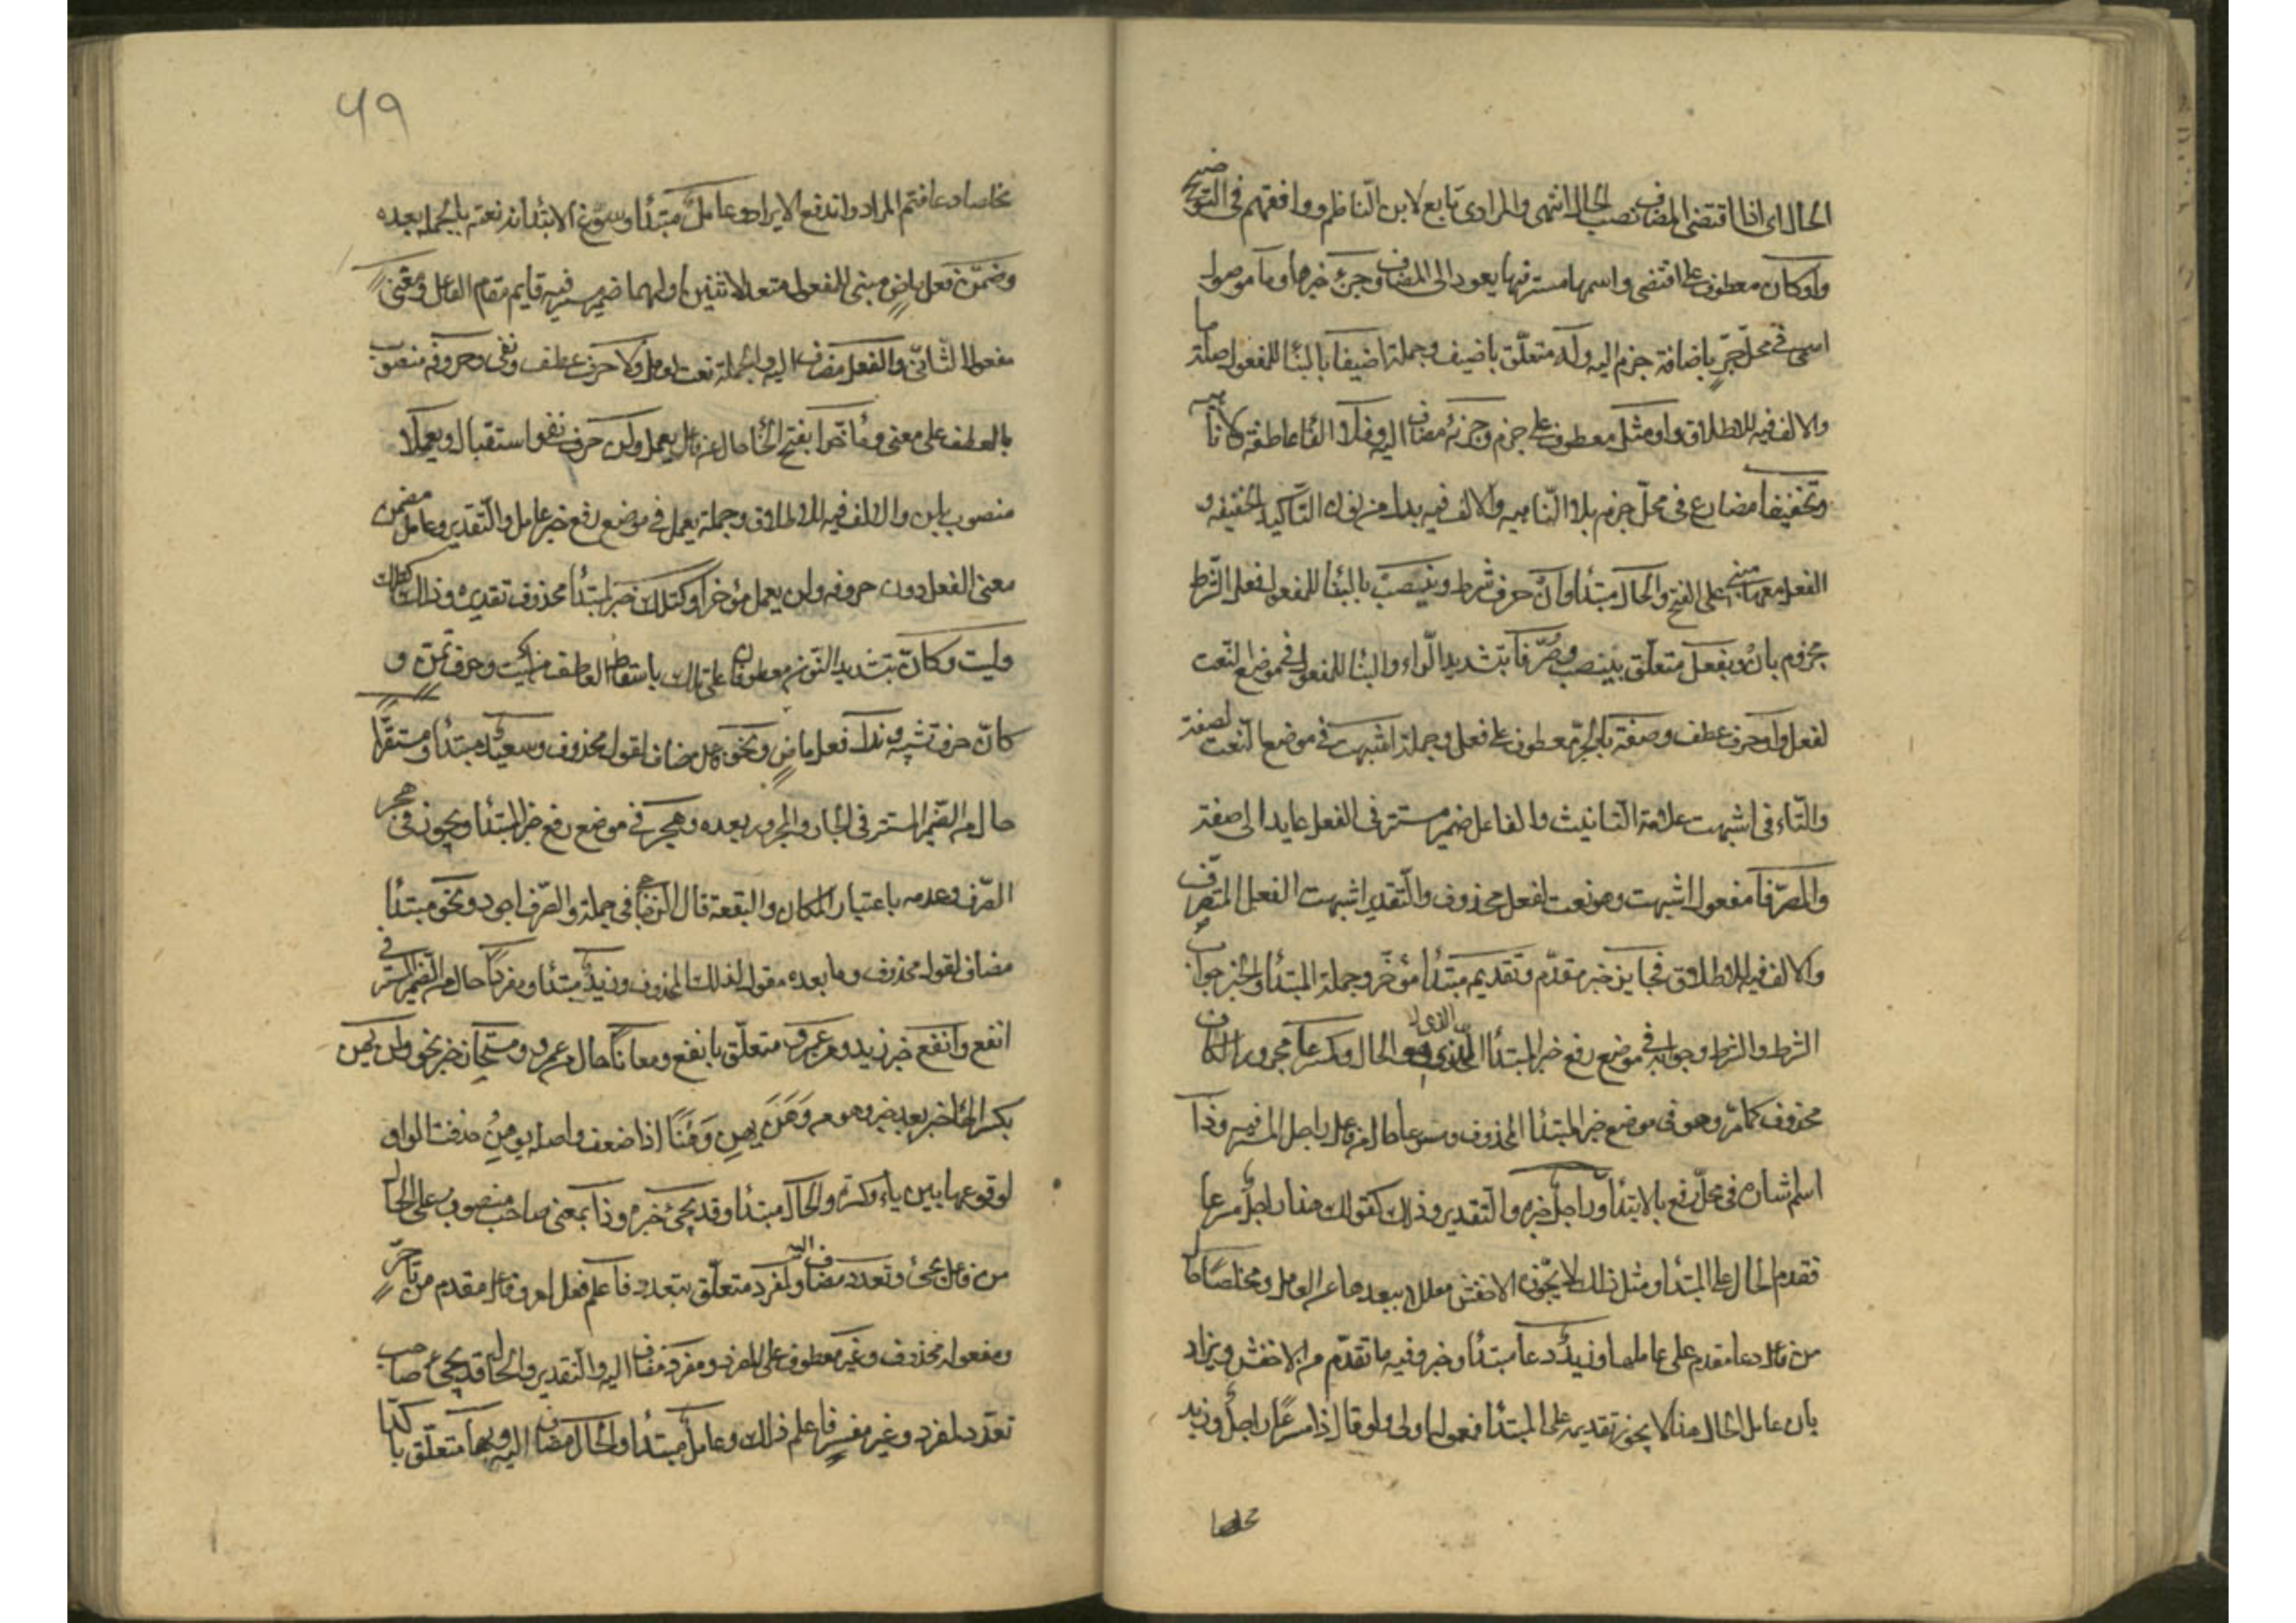 الحال اى اذا اقتضى المضاف نصب الحال انتهى والمرادى تابع لابن الناظم ووافقهم فى التوضيح
واو كان معطوف على اقتضى واسمها مستتر فيها يعود الى المضاف وجزء خبرها وما موصول
اسمى فى محل جر باضافة جزء اليه وله متعلق باضيف وجملة اضيفا بالبناء للمفعول صلة ما
والالف فيه للاطلاق واو مثل معطوف على جزء وجزئه مضاف اليه وفلا الفاء عاطفة ولا ناهيه
وتخفيفا مضارع فى محل جزم بلا الناهيه والالف فيه بدل من نون التأكيد الخفيفه و
الفعل معها مبنى على الفتح والحال مبتدأ وان حرف شرط وينصب بالبناء للمفعول فعل الشرط
مجزوم بان وبفعل متعلق بينصب وصرفا بتشديد الراء والبناء للمفعول فى موضع النعت
لفعل واو حرف عطف وصفة بالجر معطوف على فعل وجملة اشبهت فى موضع النعت لصفة
والتاء فى اشبهت علامة التانيث والفاعل ضمير مستتر فى الفعل عايد الى صفة
والمصرفا مفعول اشبهت وهو نعت لفعل محذوف والتقدير اشبهت الفعل المتصرف
والالف فيه للاطلاق فجايز خبر مقدم وتقديم مبتدأ مؤخر وجملة المبتدأ والخبر جواب
الشرط والشرط وجوابه فى موضع رفع خبر المبتدأ الذى هو الحال وكمسرعا مجرور الكاف
محذوف كما مر وهو فى موضع خبر المبتدأ المحذوف ومسرعا حال من فاعل راحل المستتر فيه وذا
اسم اشاره فى محل رفع بالابتدا وراحل خبره والتقدير وذلك كقولك هذا راحل مسرعا
فقدم الحال على المبتدا ومثل ذلك لا يجوزه الاخفش معللا ببعدها عن العامل ومخلصا حال
من فاعل دعا مقدم على عاملها وزيد دعا مبتدأ وخبر وفيه ما تقدم من الاخفش ويزاد
بان عامل الحال هنا لا يجوز تقديمه على المبتدأ فمعوله اولى ولو قال ذا مسرعا راحل وزيد
مخلصا
49
مخلصا دعا فتم المراد واندفع الايراد وعامل مبتدأ وسوغ الابتدا به نعته بالجملة بعده
وضمن فعل ماض مبنى للمفعول متعد لاثنين اولهما ضمير مستتر فيه قايم مقام الفاعل ومعنى
مفعوله الثانى والفعل مضاف اليه والجملة نعت لعامل ولا حرف عطف ونفى وحروفه منصوب
بالعطف على معنى ومؤخرا بفتح الخا حال من فاعل يعمل ولن حرف نفى واستقبال ويعملا
منصوب بلن والالف فيه للاطلاق وجملة يعمل فى موضع رفع خبر عامل والتقدير وعامل مضمن
معنى الفعل دون حروفه ولن يعمل مؤخرا وكتلك خبر لمبتدأ محذوف تقديره وذلك كتلك
وليت وكان بتشديد النون معطوفان على تلك باسقاط العاطف من ليت وحرف تمن و
كان حرف تشبيه وندر فعل ماض ونحو فاعل مضاف لقول محذوف وسعيد مبتدأ ومستقرا
حال من الضمير المستتر فى الجار والمجرور بعده وفى هجر فى موضع رفع خبر المبتدأ ويجوز فى هجر
الصرف وعدمه باعتبار المكان والبقعة قال الزجاجى فى جملة والصرف اجود ونحو مبتدأ
مضاف لقول محذوف وما بعده مقول لذلك المحذوف وزيد مبتدأ ومفردا حال من الضمير المستتر فى
انفع وانفع خبر زيد ومن عمرو متعلق بانفع ومعانا حال من عمرو ومستجاز خبر نحو ولن يهن
بكسر الها خبر بعد خبر وهو من وهن يهن وهنا اذا ضعف واصله يوهن حذفت الواو
لوقوعها بين ياء وكسرة والحال مبتدأ وقد يجئ خبره وذا بمعنى صاحب منصوب على الحال
من فاعل يجئ وتعدد مضاف اليه ولمفرد متعلق بتعدد فاعلم فعل امر وفاعل مقدم من تأخر
ومفعوله محذوف وغير معطوف على لمفرد ومفرد مضاف اليه والتقدير والحال قد يجئ صاحب
تعدد لمفرد وغير مفرد فاعلم ذلك وعامل مبتدأ والحال مضاف اليه وبها متعلق باكدا